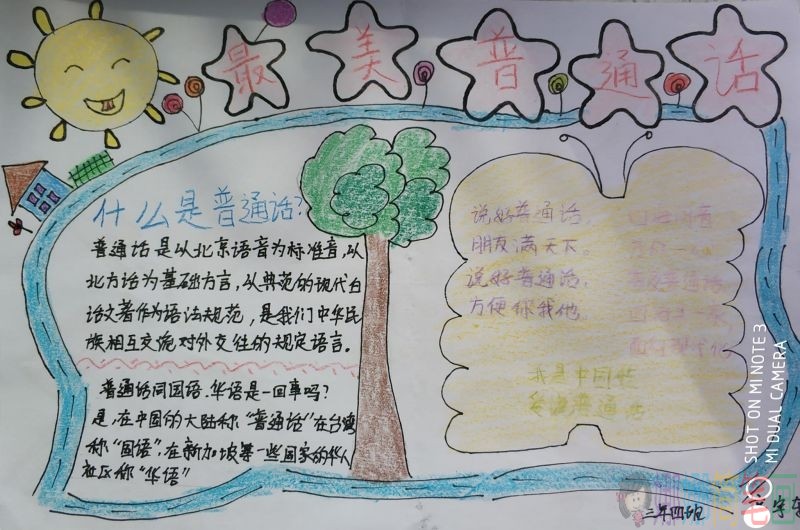 最美普通话
什么是普通话?
普通话是以北京语音为标准音,以
北方话为基础方言,以典范的现代白
话文著作为语法规范,是我们中华民
族相互交流对外交往的规定语言。
普通话同国语.华语是一回事吗?
是.在中国的大陆称"普通话"在台湾
称"国语".在新加坡等一些国家的华人
社区称"华语"
说好普通话,
朋友满天下。
说好普通话,
方便你我他.
我是中国娃
爱说普通话
三年四班
SHOT ON MI NOTE 3
MI DUAL CAMERA